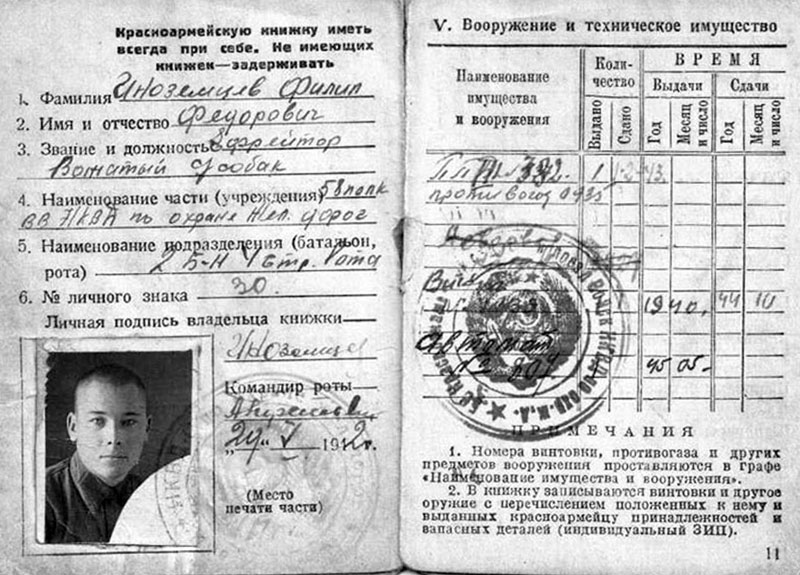 Красноармейскую книжку иметь
всегда при себе. Не имеющих
книжек—задерживать
1. Фамилия Иноземцев Филип
2. Имя и отчество Федорович
3. Звание и должность Ефрейтор
Вожатый собак
4. Наименование части (учреждения) 58 полк
ВВ НКВД по охране жел. дорог
5. Наименование подразделения (батальон,
рота) 2 Б-Н 4 стр. рота
6. № личного знака 30.
Личная подпись владельца книжки
Иноземцев
Командир роты
„29" V 1942г.
(Место
печати части)
V. Вооружение и техническое имущество
Наименование
имущества
и вооружения
Коли-
чество
Выдано
Сдано
ВРЕМЯ
Выдачи
Сдачи
Год
Месяц
и число
Год
Месяц
и число
1
противогаз
1940. 44 10
Автомат
45 05
ПРИМЕЧАНИЯ
1. Номера винтовки, противогаза и других
предметов вооружения проставляются в графе
«Наименование имущества и вооружения».
2. В книжку записываются винтовки и другое
оружие с перечислением положенных к нему и
выданных красноармейцу принадлежностей и
запасных деталей (индивидуальный ЗИП).
11